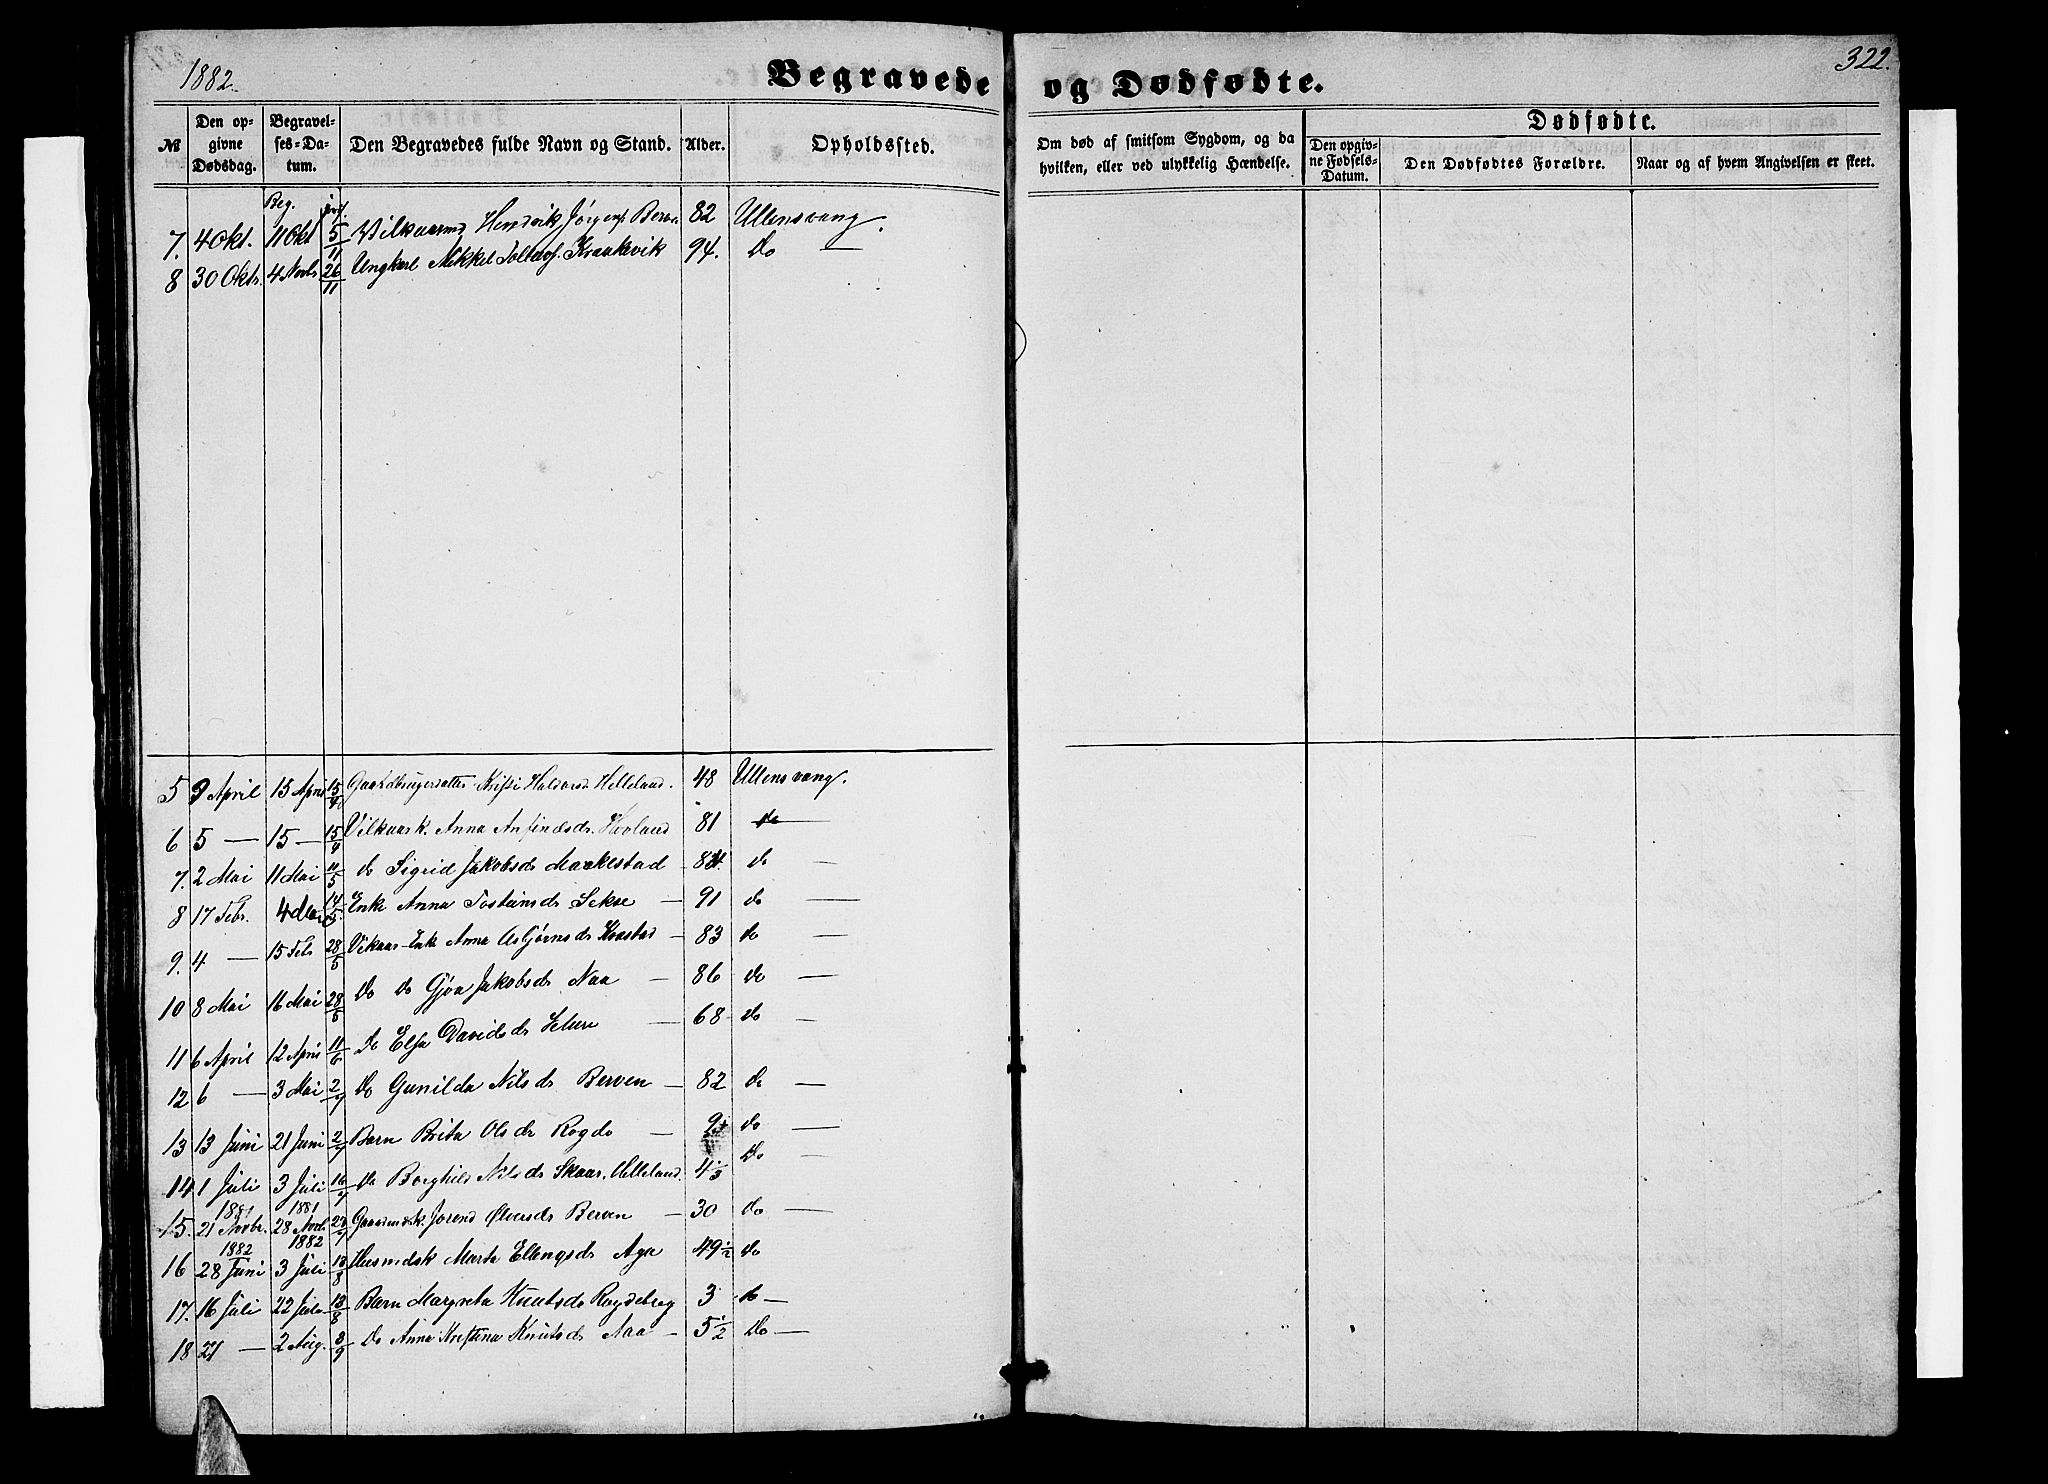 1882.
Begravede og Dødfødte.
322.
№
Den opgivne Dødsdag.
Begravelses-Datum.
Den Begravedes fulde Navn og Stand.
Alder.
Opholdssted.
Om død af smitsom Sygdom, og da hvilken, eller ved ulykkelig Hændelse.
Dødfødte.
Den opgivne Fødsels-Datum.
Den Dødfødtes Forældre.
Naar og af hvem Angivelsen er skeet.
Beg. jordf.
7. 4 Okt. 11 Okt 5/11 Vilkaarmd Hendrik Jörgens. Berve 82 Ullensvang.
8 30 Oktr. 4 Novbr 26/11 Ungkarl Mikkel Tollevs. Kraakevik 94. Do —
5 9 April 15 April 15/4 Gaardbrugerdatter Kristi Haldorsd Helleland. 48 Ullensvang.
6 5 — 15 — 15/4 Vilkaarsk. Anna Anfindsdr. Hovland 81 do —
7. 2 Mai 11 Mai 11/5 do Sigrid Jakobsdr Maakestad 84. do —
8 17 Febr. 4 Mai 14/5. Enke Anna Tosteinsdr Sekse — 91 do —
9. 4 — 15 Febr 28/5 Vikaar-Enke Anna Asbjörnsdr Kvastad — 83 do —
10 8 Mai 16 Mai 28/5 Do do Gjöa Jakobsdr Naa — 86 do —
11 6 April 12 April 11/6 do Elsa Davidsdr — 68 do —
12 6 — 3 Mai 2/7 do Gunilda Nilsdr Berven — 82 do —
13 13 Juni 21 Juni 2/7 Barn Brita Olsdr Rogde — do —
14 1 Juli 3 Juli 16/7 do Borghild Nilsdr Skaar, Helleland. 4 1/3 Do —
15. 1881 21 Novbr. 1881 28 Novbr. 23/7 Gaardmdsk. Jorend Ölversdr Berven — 30 do —
16 1882 28 Juni 1882 3 Juli 13/8 Husmdsk Marta Ellingsdr Aga 49 1/2 do
17. 16 Juli 22 Juli 13/8 Barn Margreta Knutsdr 3 do —
18 27 — 2 Aug. 3/9 do Anna Kristina Knutsdr Aaa — 5 1/2 Do —